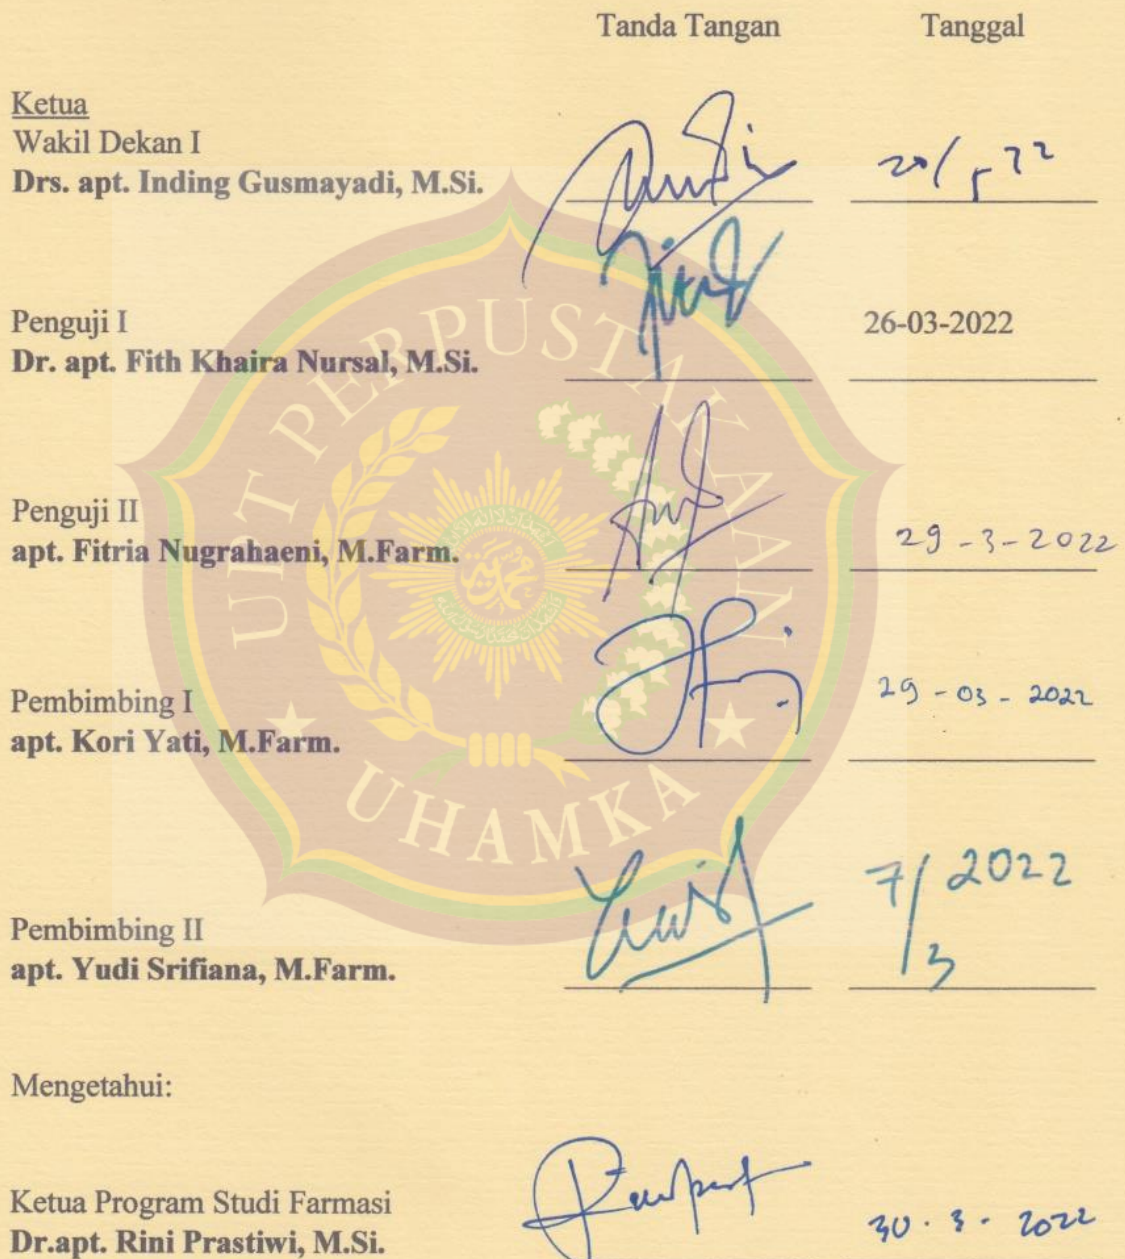 Tanda Tangan Tanggal
Ketua
Wakil Dekan I
Drs. apt. Inding Gusmayadi, M.Si.
20/5 22
Penguji I
26-03-2022
Dr. apt. Fith Khaira Nursal, M.Si.
Penguji II
apt. Fitria Nugrahaeni, M.Farm.
29-3-2022
Pembimbing I
29-03-2022
apt. Kori Yati, M.Farm.
7/3 2022
Pembimbing II
apt. Yudi Srifiana, M.Farm.
Mengetahui:
Ketua Program Studi Farmasi
Dr.apt. Rini Prastiwi, M.Si.
30.3.2022
UPT PERPUSTAKAAN
UHAMKA